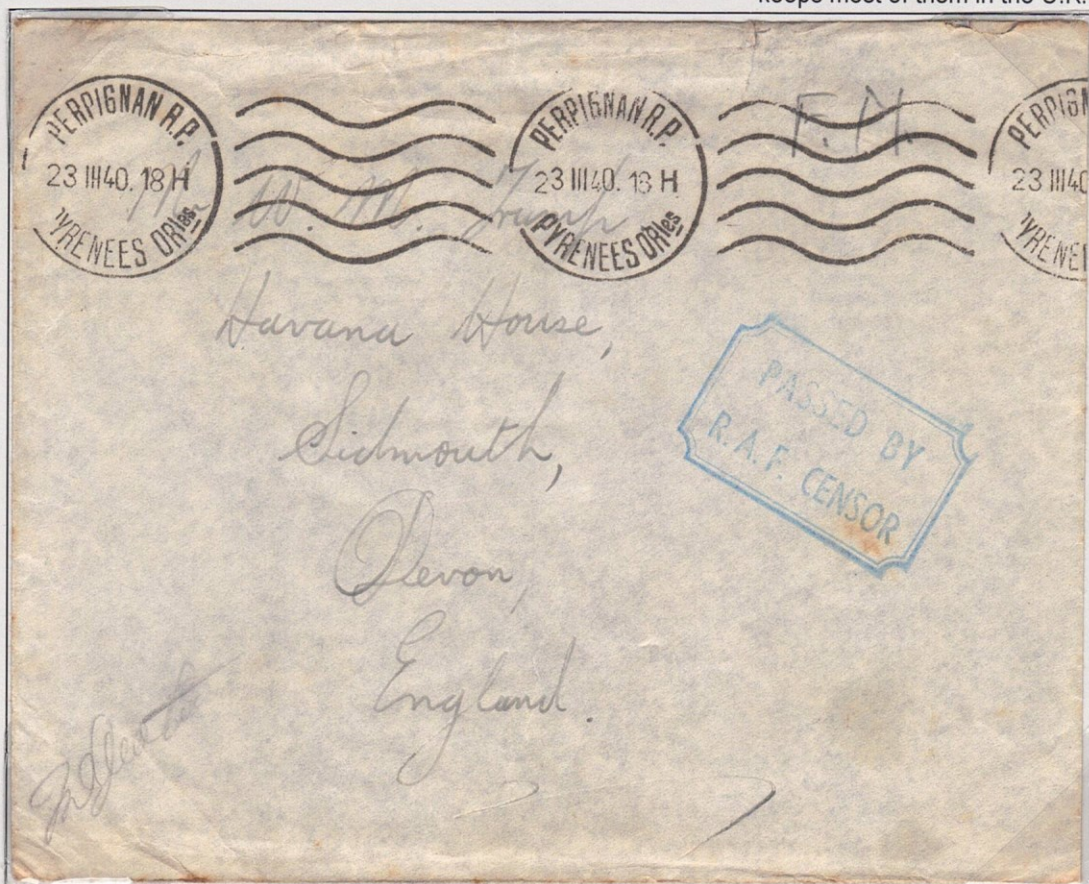 keeps most of them in the U.K.
PERPIGNAN R.P.
23 III 40. 18 H
PYRENEES ORles
PERPIGNAN R.P.
23 III 40. 18 H
PYRENEES ORles
F.M.
PERPIGN
23 III 40
YRENEE
W. M. Trump
Havana House,
Sidmouth,
Devon,
England.
PASSED BY
R.A.F. CENSOR